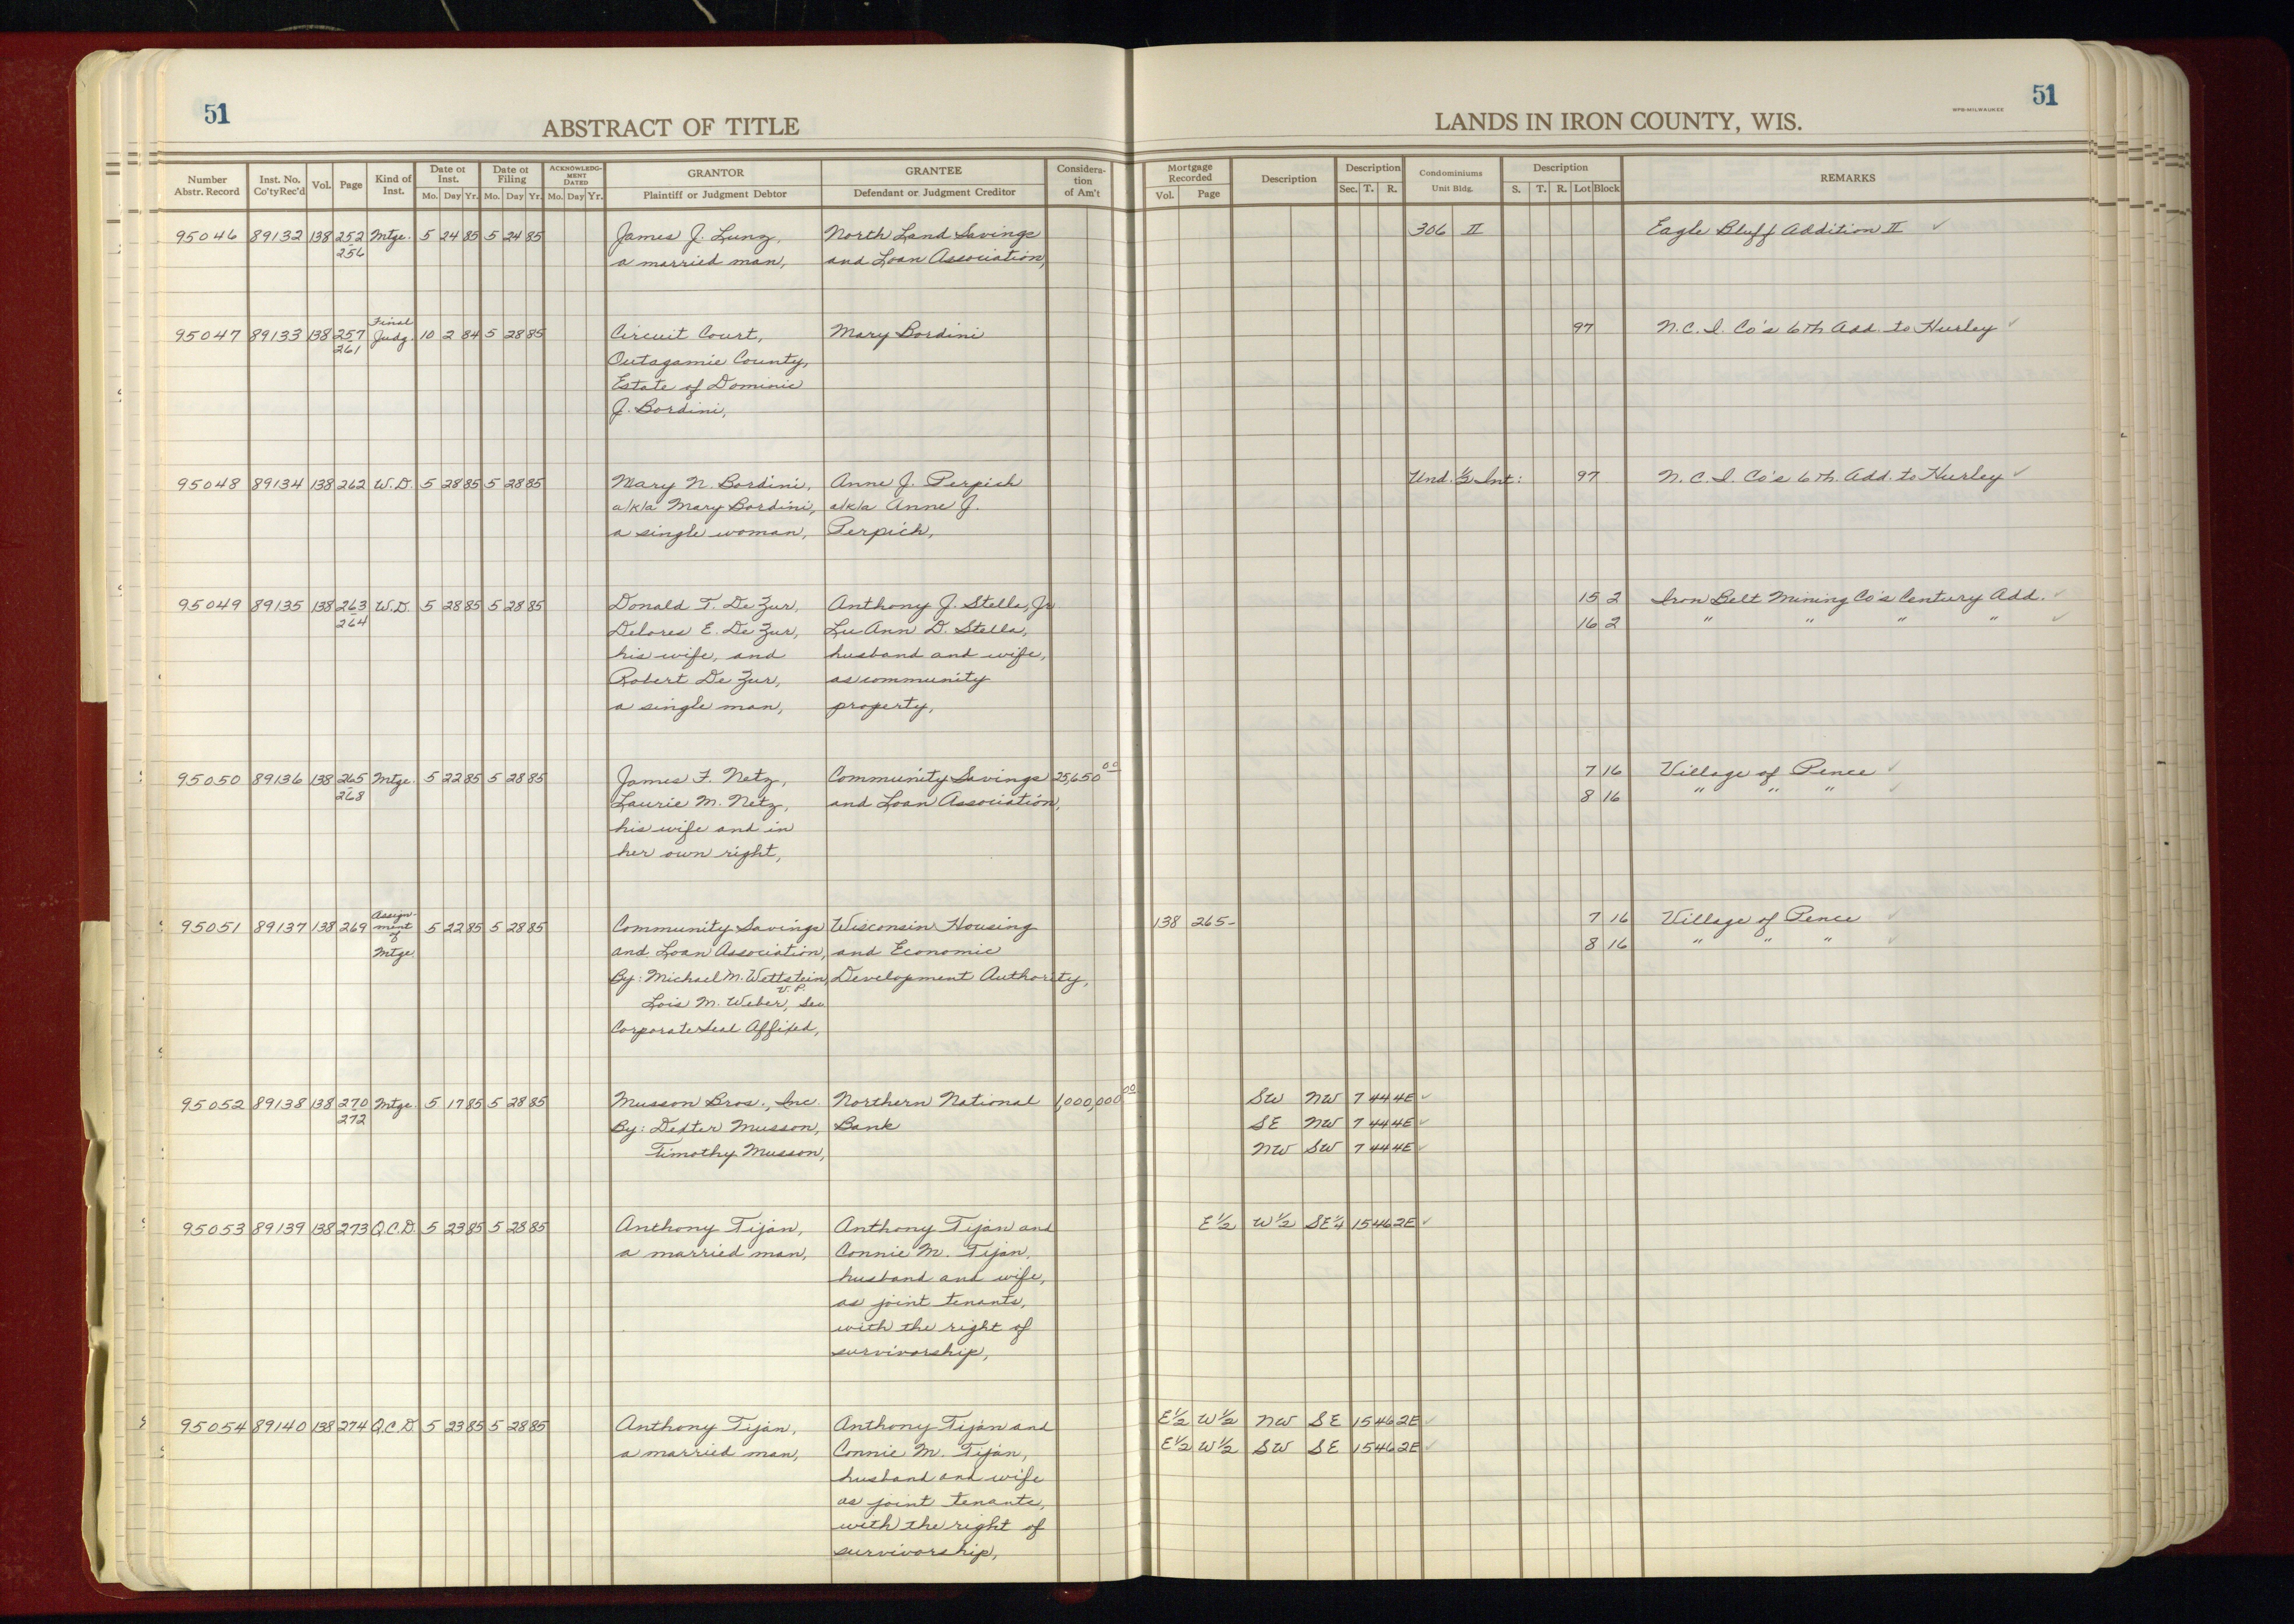 51
ABSTRACT OF TITLE
LANDS IN IRON COUNTY, WIS.
WPB-MILWAUKEE
51
Number Abstr. Record | Inst. No. Co'ty Rec'd | Vol. | Page | Kind of Inst. | Date of Inst. Mo. Day Yr. | Date of Filing Mo. Day Yr. | ACKNOWLEDGMENT DATED Mo. Day Yr. | GRANTOR Plaintiff or Judgment Debtor | GRANTEE Defendant or Judgment Creditor | Consideration of Am't | Mortgage Recorded Vol. Page | Description | Description Sec. T. R. | Condominiums Unit Bldg. | Description S. T. R. Lot Block | REMARKS
95046 89132 138 252 Mtge. 5 24 85 5 24 85 James J. Lunz, North Land Savings 306 II Eagle Bluff Addition II ✓
256 a married man, and Loan Association,
Final
95047 89133 138 257 Judg. 10 2 84 5 28 85 Circuit Court, Mary Bordini 97 N.C.I. Co's 6th Add. to Hurley ✓
261 Outagamie County,
Estate of Dominic
J. Bordini,
95048 89134 138 262 W.D. 5 28 85 5 28 85 Mary N. Bordini, Anne J. Perpich Und. 1/2 Int: 97 N.C.I. Co's 6th. Add. to Hurley ✓
a/k/a Mary Bordini, a/k/a Anne J.
a single woman, Perpich,
95049 89135 138 263 W.D. 5 28 85 5 28 85 Donald T. De Zur, Anthony J. Stella, Jr 15 2 Iron Belt Mining Co's Century Add. ✓
264 Delores E. De Zur, Lu Ann D. Stella, 16 2 " " " " ✓
his wife, and husband and wife,
Robert De Zur, as community
a single man, property,
95050 89136 138 265 Mtge. 5 22 85 5 28 85 James F. Netz, Community Savings 25,650 00 7 16 Village of Pence ✓
268 Laurie M. Netz, and Loan Association, 8 16 " " " ✓
his wife and in
her own right,
Assign-
95051 89137 138 269 ment 5 22 85 5 28 85 Community Savings Wisconsin Housing 138 265- 7 16 Village of Pence ✓
of Mtge. and Loan Association, and Economic 8 16 " " " ✓
By: Michael M. Wettstein, Development Authority,
V.P.
Lois M. Weber, Sec.
Corporate Seal Affixed,
95052 89138 138 270 Mtge. 5 17 85 5 28 85 Musson Bros., Inc. Northern National 1,000,000 00 SW NW 7 44 4E ✓
272 By: Dexter Musson, Bank SE NW 7 44 4E ✓
Timothy Musson, NW SW 7 44 4E ✓
95053 89139 138 273 Q.C.D. 5 23 85 5 28 85 Anthony Tijan, Anthony Tijan and E1/2 W1/2 SE1/4 15 46 2E ✓
a married man, Connie M. Tijan,
husband and wife,
as joint tenants,
with the right of
survivorship,
95054 89140 138 274 Q.C.D. 5 23 85 5 28 85 Anthony Tijan, Anthony Tijan and E1/2 W1/2 NW SE 15 46 2E ✓
a married man, Connie M. Tijan, E1/2 W1/2 SW SE 15 46 2E ✓
husband and wife
as joint tenants,
with the right of
survivorship,